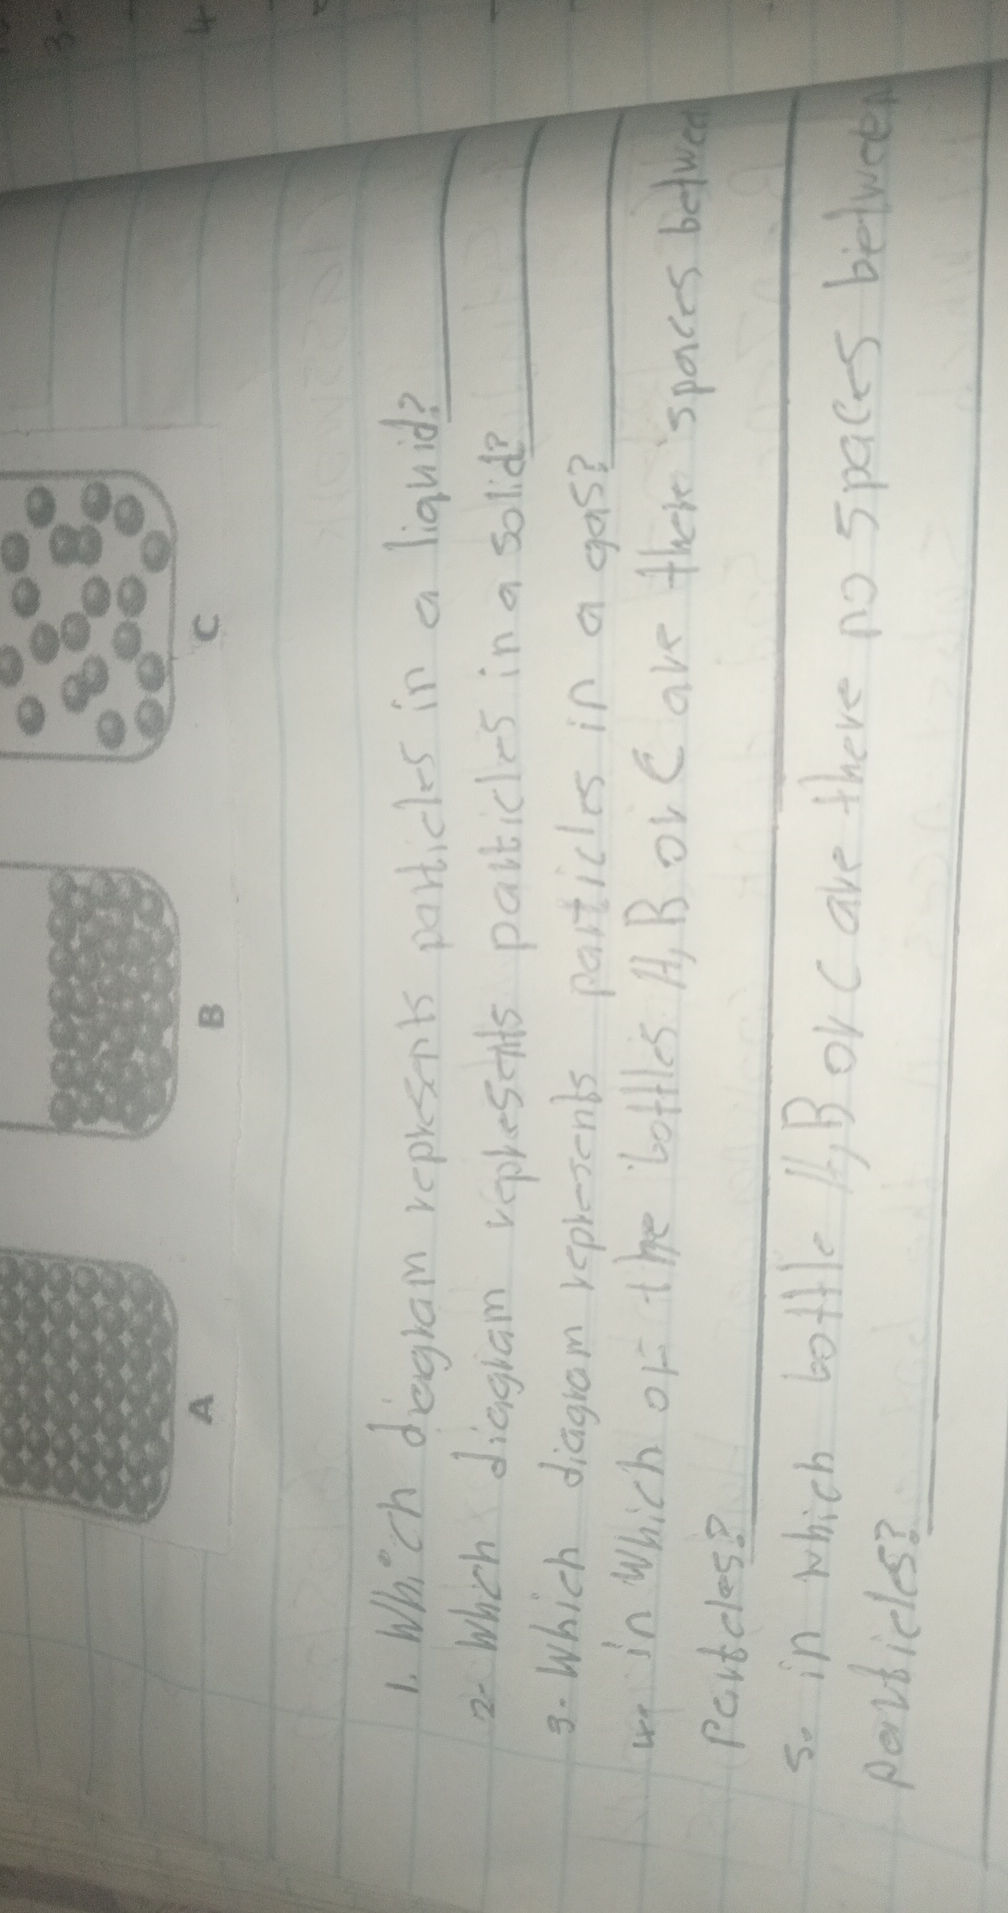 A B C
1. Which diagram represents particles in a liquid?
2. Which diagram represents particles in a solid?
3. Which diagram represents particles in a gas?
4. in Which of the bottles A, B or C are there spaces between
Particles?
5. in which bottle A, B or C are there no spaces between
particles?
3.
4